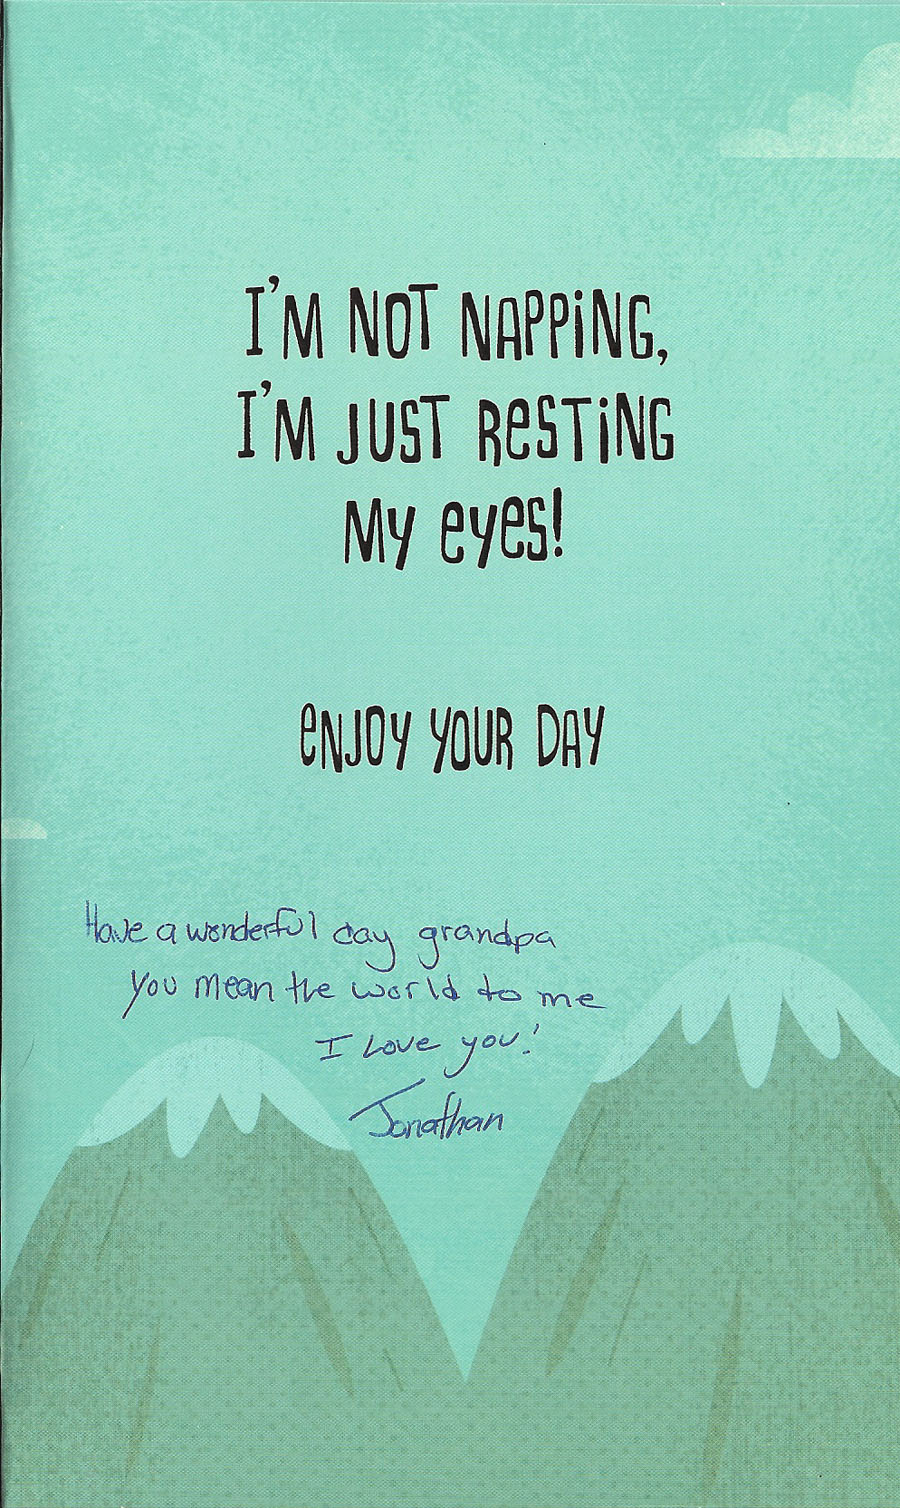 I'M NOT NAPPiNG,
I'M JUST ReSTiNG
My eyes!
eNJOY YOUR DAY
Have a wonderful day grandpa
You mean the world to me
I Love you!
Jonathan